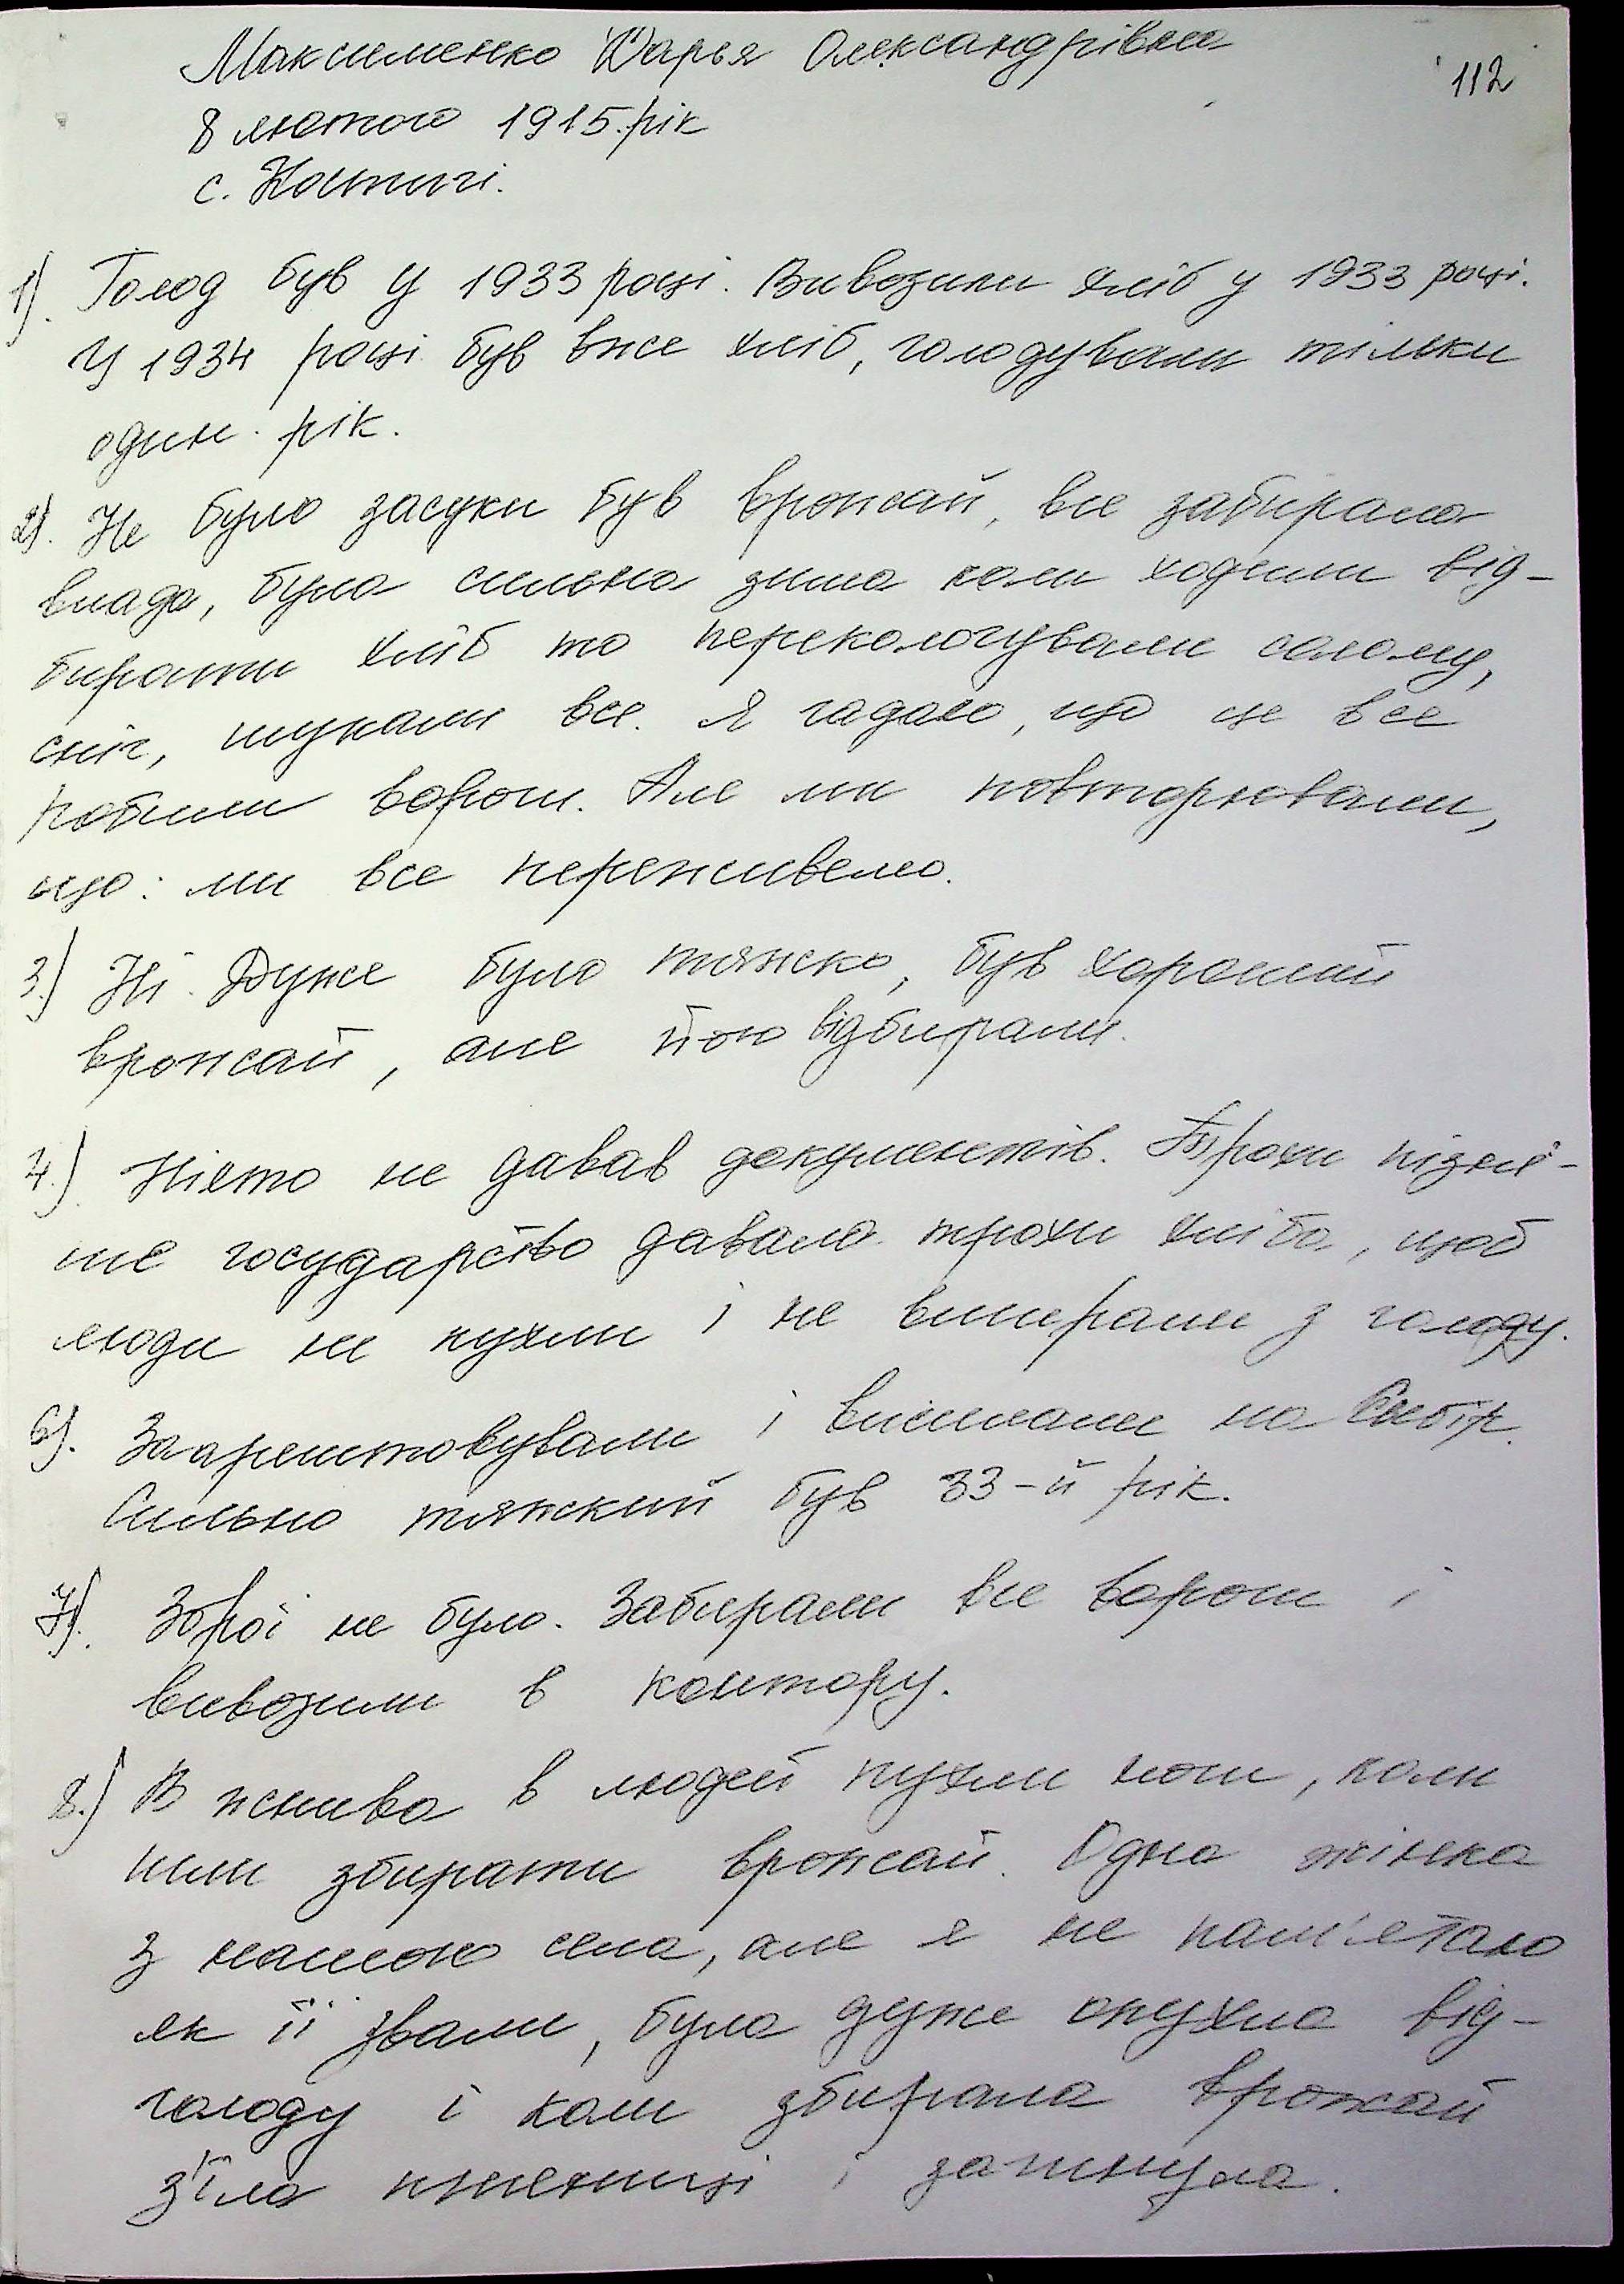 Максименко Дарья Олександрівна
112
8 лютого 1915.рік
с.
1). Голод був у 1933 році. Вивозили хліб у 1933 році.
У 1934 році був вже хліб, голодували тільки
один рік.
2). Не було засухи був врожай, все забирала
влада, була сильна зима коли ходили від-
бирати хліб то перекологували солому,
сніг, шукали все. Я гадаю, що це все
робили вороги. Але ми повторювали,
що: ми все переживемо.
3.) Ні. Дуже було тяжко, був хороший
врожай, але його відбирали.
4.) Ніхто не давав документів. Трохи пізні-
ше государство давало трохи хліба, щоб
люди не пухли і не вмирали з голоду.
6). Заарештовували і висилали на Сибір.
Сильно тяжкий був 33-й рік.
7). Зброї не було. Забирали все вороги і
вивозили в контору.
8.) В жнива в людей пухли ноги, коли
йшли збирати врожай. Одна жінка
з нашого села, але я не пам'ятаю
як її звали, була дуже опухла від-
голоду і коли збирала врожай
з'їла пшениці і загинула.